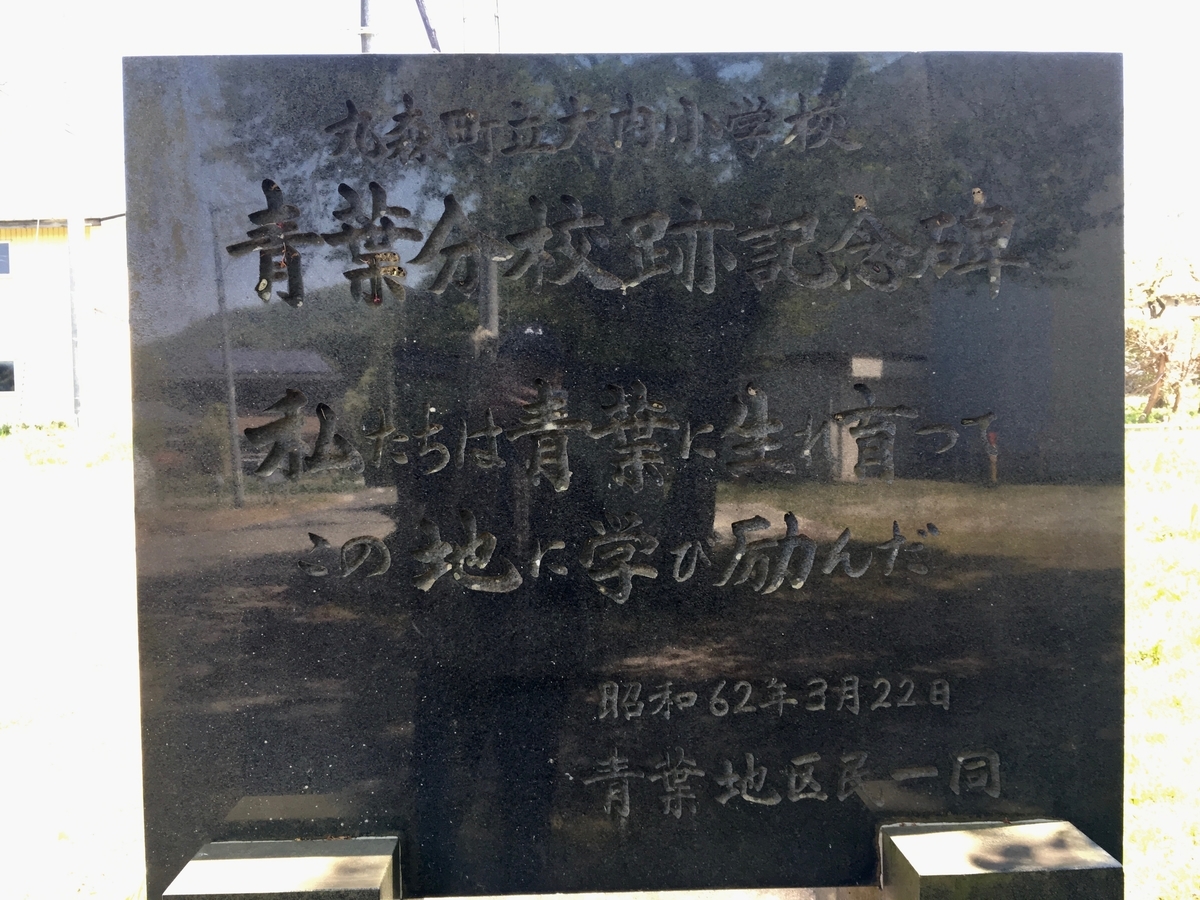 丸森町立大内小学校
青葉分校跡記念碑
私たちは青葉に生れ育って
この地に学び励んだ
昭和62年3月22日
青葉地区民一同